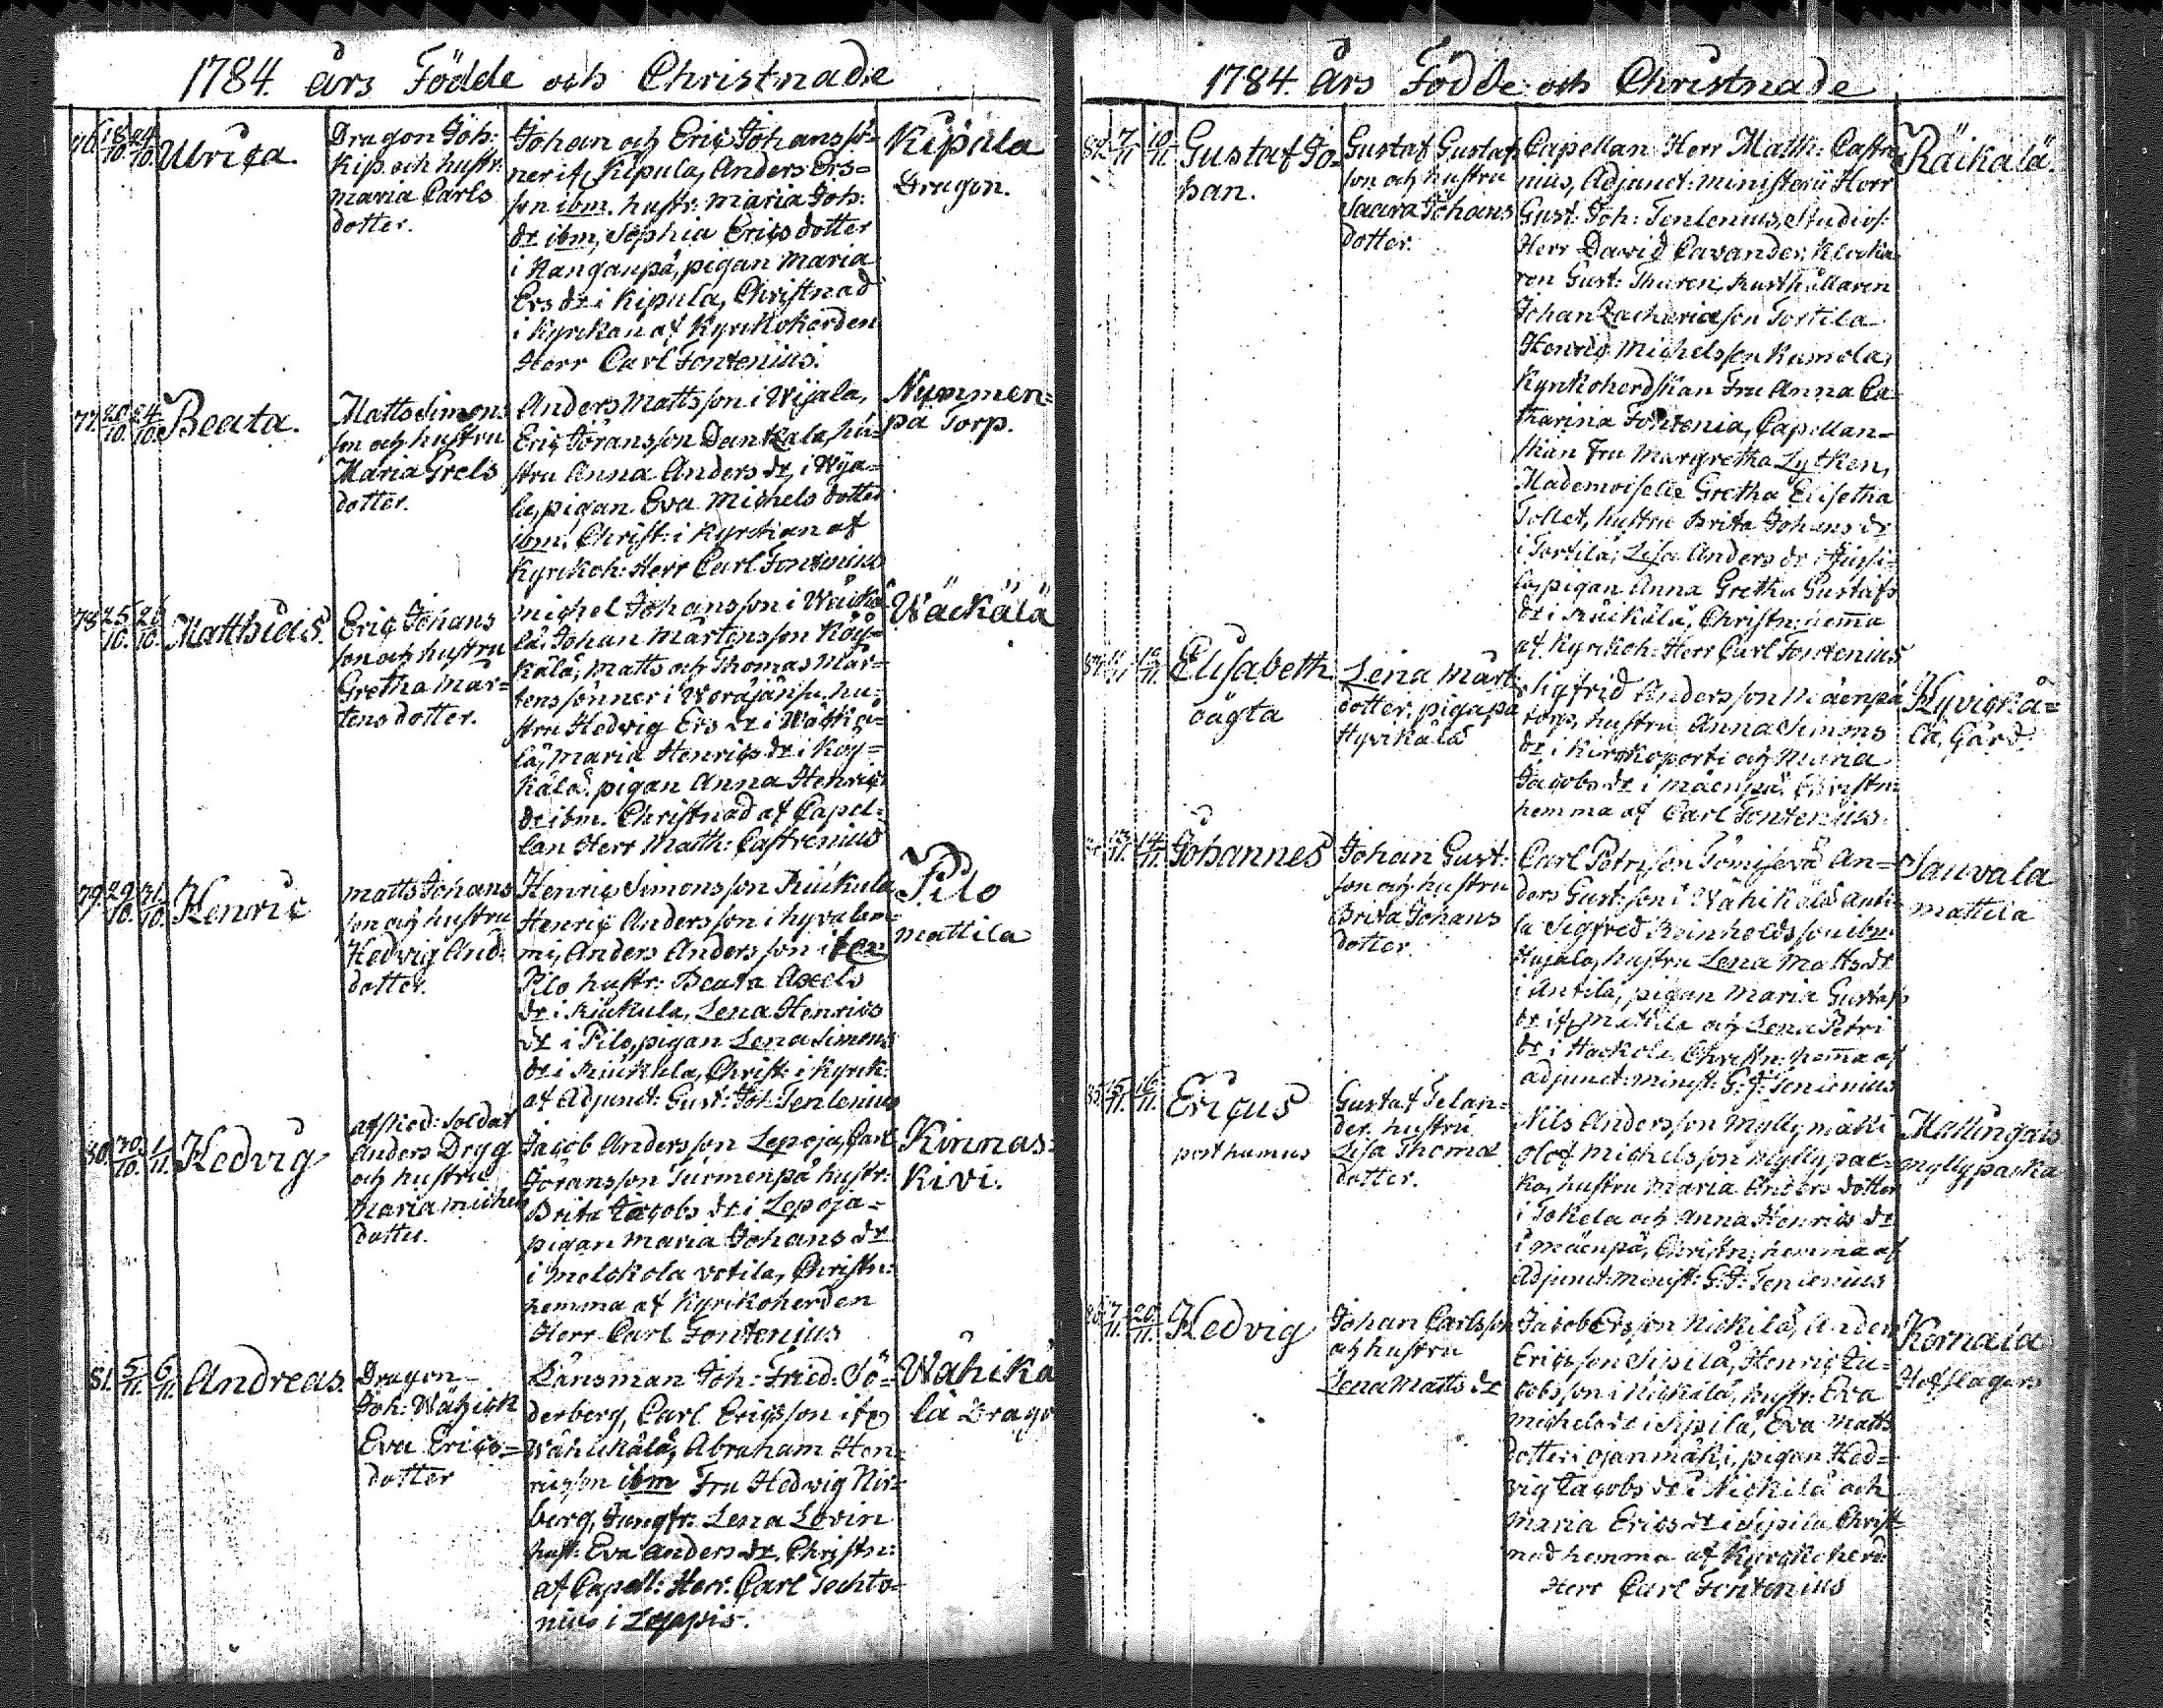 1784. års Födde och Christnade
76. 18/10. 24/10. Ulrica.
Dragon Joh:
Kip. och hustr:
Maria Carls
dotter.
Johan och Eric Johanssö=
ner if. Kipula, Anders Ers=
son ibm. hustr: Maria Joh:
dr ibm, Sophia Erics dotter
i Kanganpä, pigan Maria
Ers dr i Kipula, Christnad
i Kyrkan af Kyrkoherden
Herr Carl Fontenius.
Kipula
Dragon.
77. 20/10. 24/10. Beata.
Matts Simons
son och hustru
Maria Grels
dotter.
Anders Matts son i Wijala,
Eric Göransson Dankala, hu=
stru Anna Anders dr i Wija=
la, pigan Eva Michels dotter
ibm. Christ: i Kyrkian af
Kyrkoh: Herr Carl Fontenius
Nummen=
pä Torp.
78 25/10. 26/10. Matthias.
Eric Johans
son och hustru
Gretha Mar=
tens dotter.
Michel Johansson i Wäckä
lä, Johan Mårtensson Köy=
kälä, Matts och Thomas Mår=
tenssönner i hu=
stru Hedvig Ers dr i
lä, Maria Henrics dr i Köy=
kälä, pigan Anna Henrics
dr ibm. Christnad af Capel=
lan Herr Matth: Castrenius
Wäckälä
79. 29/10. 31/10. Henric
Matts Johans
son och hustru
Hedvig And:
dotter.
Henric Simonsson Riukula
Henric Andersson i hyvalem=
mi, Anders Andersson i
Pilo hustr: Beata Axels
dr i Riukula, Lena Henrics
dr i Pilo, pigan Lena Simons
dr i Riukula, Christ: i Kyrk:
af Adjunct: Gust: Joh. Tenlenius
Pilo
Mattila
80. 30/10. 1/11. Hedvig
afsked: Soldat
Anders Dryg
och hustru
Maria Michels
dotter.
Jacob Andersson Lepoja, Carl
Göransson Turmenpä hustr:
Brita Jacobs dr i Lepoja=
pigan Maria Johans dr
i Melskola votila, Christn:
hemma af Kyrkoherden
Herr Carl Fontenius
Kinnas=
Kivi.
81. 5/11. 6/11. Andreas.
Dragon
Joh: Wähick
Eva Erics=
dotter
Länsman Joh: Fried: Sö=
derberg, Carl Ericsson if.
Wähikälä, Abraham Hen=
ricsson ibm Fru Hedvig Nor=
berg, Jungfr: Lena Lovin
hust: Eva Anders dr. Christn:
af Capell: Herr Carl Techto=
nius i Leppis.
Wähikä
lä Drago
1784. års Födde och Christnade
7/11 10/11. Gustaf Jo=
han.
Gustaf Gustaf
son och hustru
Saara Johans
dotter.
Capellan Herr Matth: Castre
nius, Adjunct: ministerii Herr
Gust: Joh: Tenlenius, Studios:
Herr David Cavander, Klocka
ren Gust: Thuren, Rusthållaren
Johan Zachariason Tortila
Henric Michelsson Kumola,
Kyrkoherdskan Fru Anna Ca=
tharina Fontenia, Capellan=
skan Fru Margretha Lytken,
Mademoiselle Gretha Elisetha
Tollet, hustru Brita Johans dr
i Tortila, Lisa Anders dr i Jussi=
la, pigan Anna Gretha Gustafs
dr i Räikälä, Christn: hem̄a
af Kyrkoh: Herr Carl Fontenius
Räikälä.
Elisabeth
oägta
Lena Mårt:
dotter. piga på
Hyvikälä
Sigfrid Andersson Mäenpä
torp, hustru Anna Simons
dr i Kirkoporti och Maria
Jacobs dr i Mäenpä. Christn:
hemma af Carl Fontenius.
Hyvickä=
lä, Gård.
13/11. 14/11. Johannes
Johan Gust:
son och hustru
Brita Johans
dotter.
Carl Petrsson Tömisevä An=
ders Gust: son i Wähikälä Anti=
la Sigfred Reinholdsson ibm.
Hujala, hustru Lena Matts dr
i Antila, pigan Maria Gustafs
dr if. Mattila och Lena Petri
dr i Hackola Christn: hem̄a af
adjunct: minist: G: J: Tenlenius
Sauvala
Mattila
85. 15/11. 16/11. Ericus
posthumus
Gustaf Selan=
der. hustru
Lisa Thomæ
dotter.
Nils Andersson Myllymäki
Olof Michelsson Myllypac=
ka, hustru Maria Anders dotter
i Tokela och Anna Henrics dr
i Mäenpä, Christn: hemma af
Adjunct: minist: G: J: Tenlenius
Mallingais
Myllypacka
17/11. 20/11. Hedvig
Johan Carlsson
och hustru
Lena Matts dr
Jacob Ersson Nickilä, Anders
Ericsson Sipilä, Henric Ja=
cobsson i Nickilä, hustr: Eva
Michels dr i Sipilä, Eva Matts
dotter i Ojanmäki, pigan Hed=
vig Jacobs dr i Nickilä och
Maria Erics dr i Sipilä, Christ=
nad hemma af Kyrckoherd
Herr Carl Fontenius
Kernala
Hofslagers